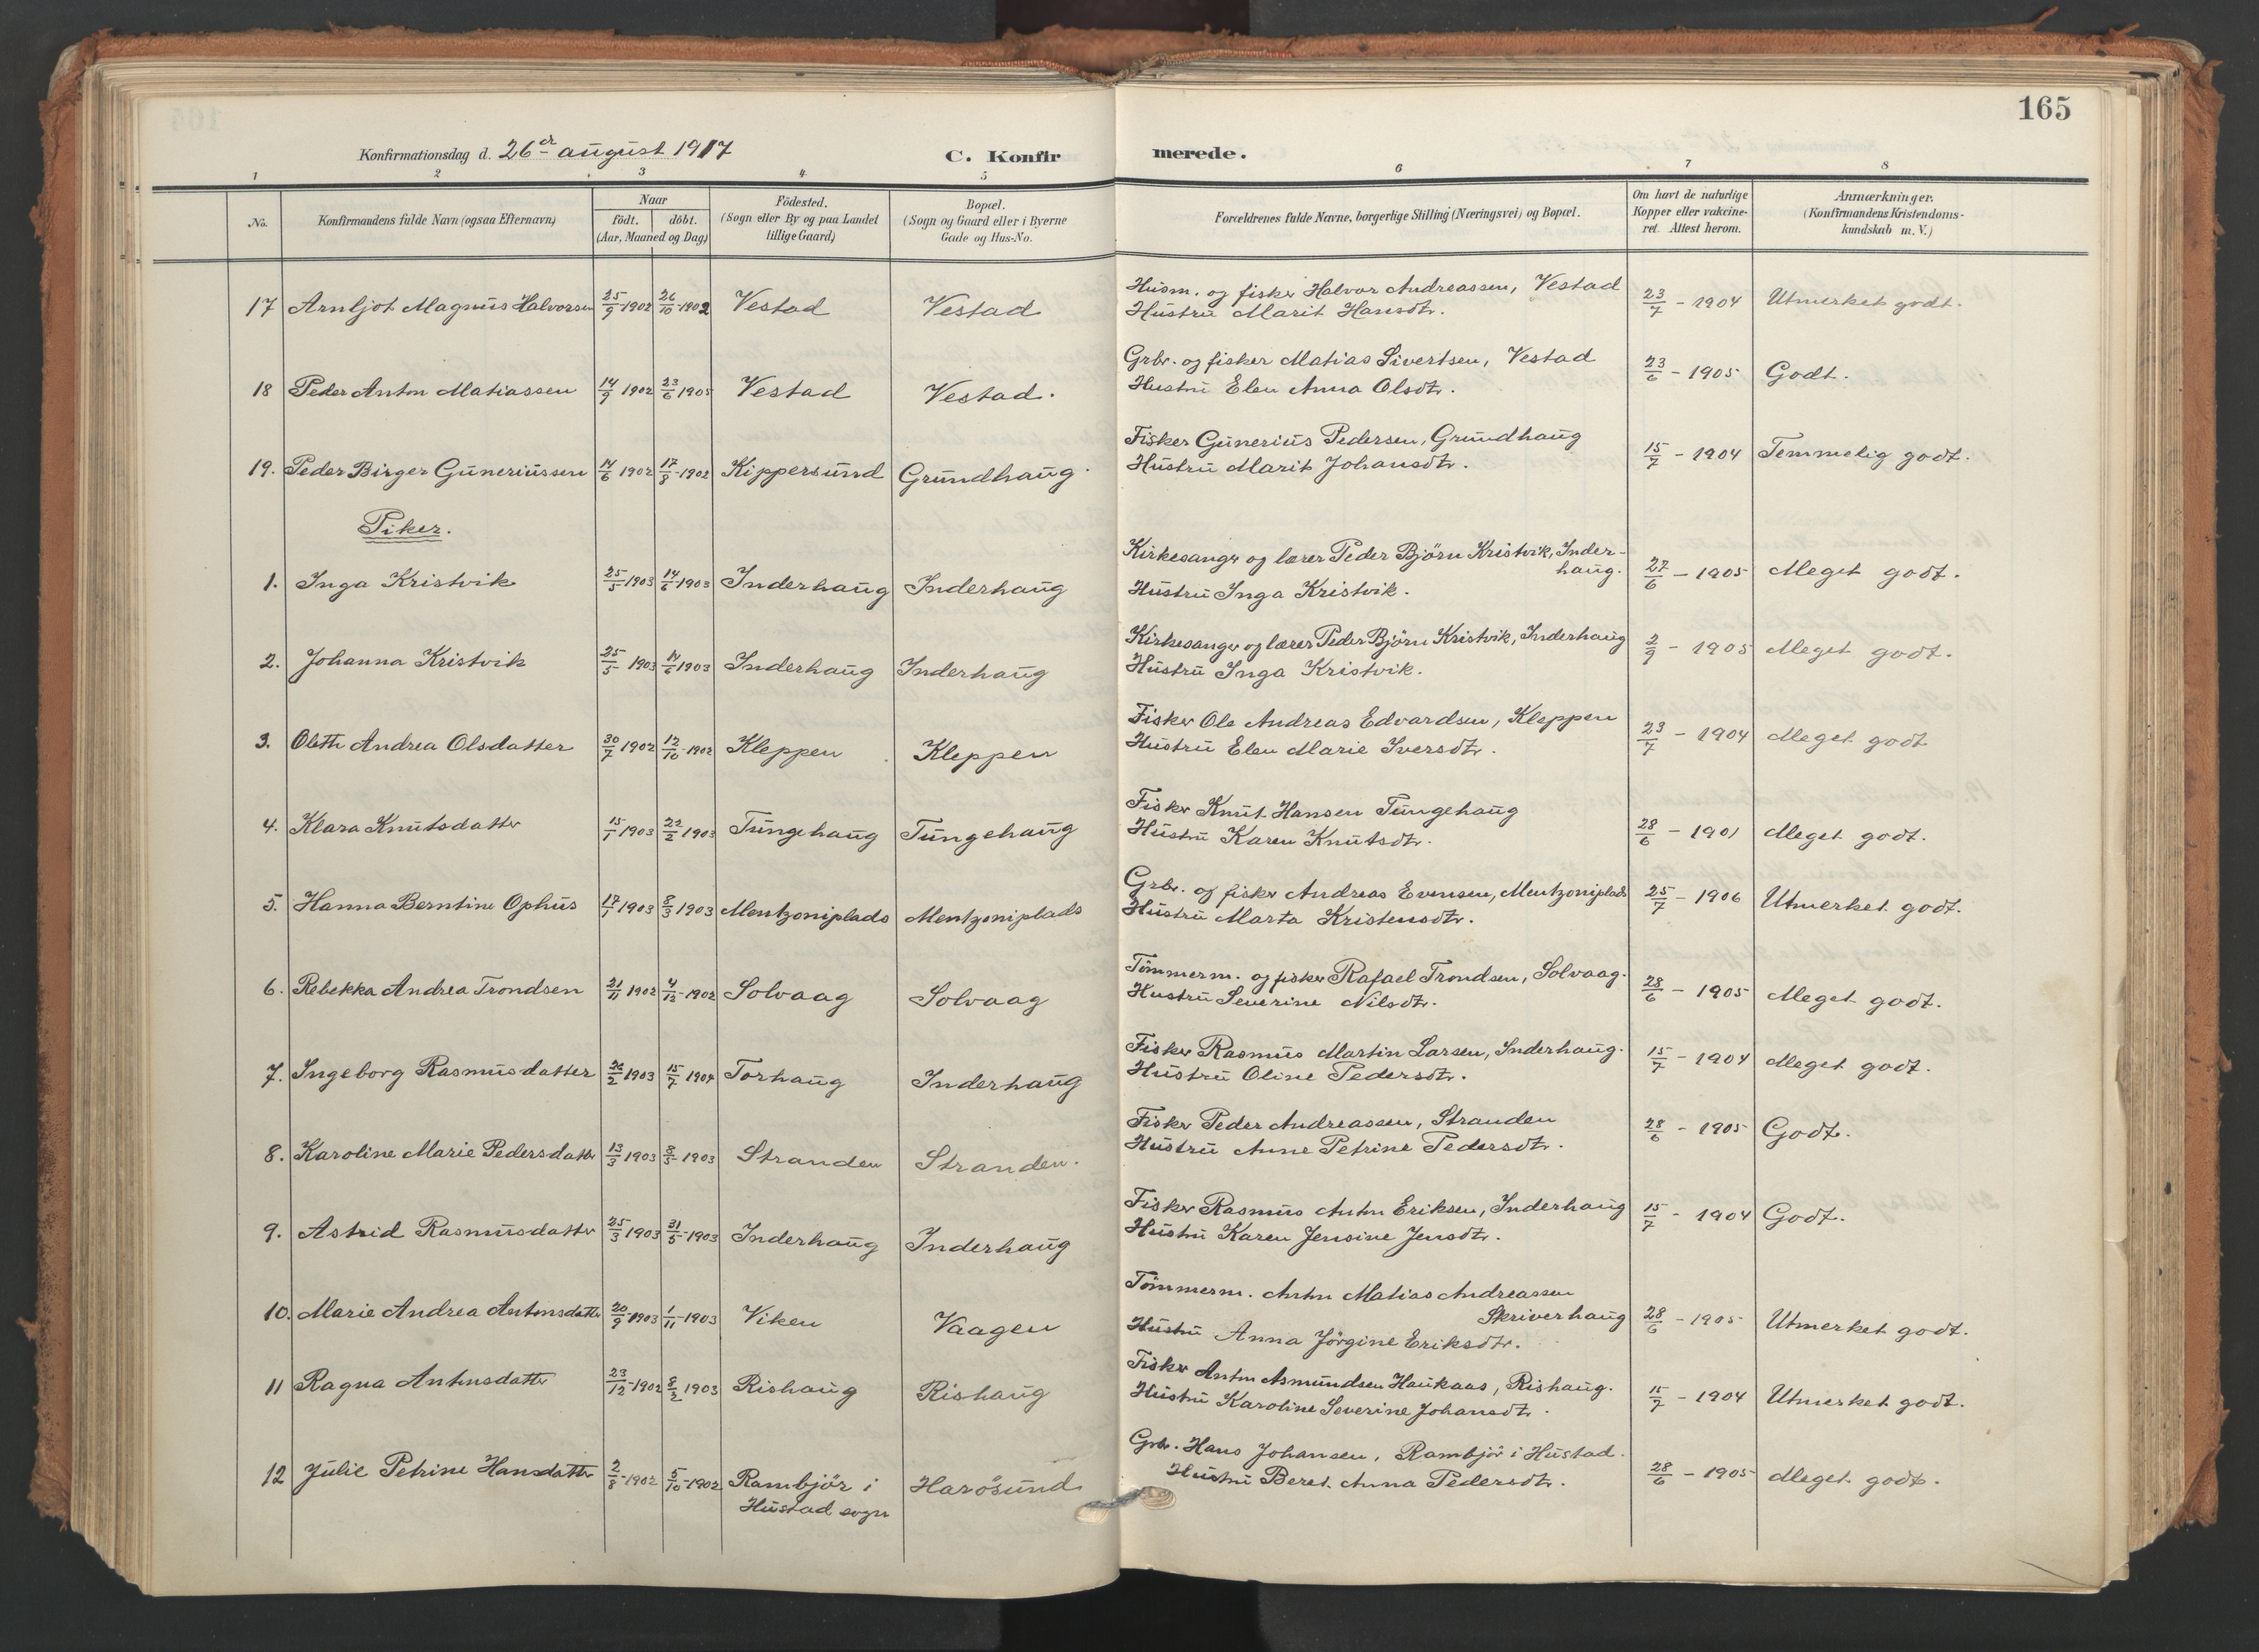 165
Konfirmationsdag d. 26de august 1917
C. Konfirmerede.
1 2 3 4 5 6 7 8
No.
Konfirmandens fulde Navn (ogsaa Efternavn)
Naar
födt. döbt.
(Aar, Maaned og Dag)
Födested.
(Sogn eller By og paa Landet
tillige Gaard)
Bopæl.
(Sogn og Gaard eller i Byerne
Gade og Hus-No.
Forældrenes fulde Navne, borgerlige Stilling (Næringsvei) og Bopæl.
Om havt de naturlige
Kopper eller vakcine-
ret. Attest herom.
Anmærkninger.
(Konfirmandens Kristendoms-
kundskab m. V.)
17 Arnljot Magnus Halvorsen 25/9 1902 26/10-1902 Vestad Vestad Husm. og fisker Halvor Andreassen, Vestad 23/7 - 1904 Utmerket godt.
Hustru Marit Hansdtr.
18 Peder Anton Matiassen 14/9 1902 23/6 1905 Vestad Vestad. Grbr. og fisker Matias Sivertsen, Vestad 23/6 - 1905 Godt.
Hustru Elen Anna Olsdtr.
19. Peder Birger Guneriussen 14/6 1902 17/8-1902 Kippersund Grundhaug Fisker Gunerius Pedersen, Grundhaug 15/7 - 1904 Temmelig godt.
Hustru Marit Johansdtr.
Piker.
1. Inga Kristvik 25/5 1903 14/6 1903 Inderhaug Inderhaug Kirkesanger og lærer Peder Björn Kristvik, Inder-
haug. 27/6 - 1905 Meget godt.
Hustru Inga Kristvik.
2. Johanna Kristvik 25/5 1903 14/6 1903 Inderhaug Inderhaug Kirkesanger og lærer Peder Björn Kristvik, Inderhaug 2/9 - 1905 Meget godt.
Hustru Inga Kristvik.
3. Oleth Andrea Olsdatter 30/7 1902 12/10-1902 Kleppen Kleppen Fisker Ole Andreas Edvardsen, Kleppen 23/7 - 1904 Meget godt
Hustru Elen Marie Iversdtr.
4. Klara Knutsdatter 15/1 1903 22/2 1903 Tungehaug Tungehaug Fisker Knut Hansen Tungehaug 28/6 - 1901 Meget godt.
Hustru Karen Knutsdtr.
5. Hanna Berntine Ophus 17/1 1903 8/3 1903 Mentzoniplads Mentzoniplads Grbr. og fisker Andreas Evensen, Mentzoniplads 25/7 - 1906 Utmerket godt.
Hustru Marta Kristensdtr.
6. Rebekka Andrea Trondsen 21/11 1902 4/12-1902 Solvaag Solvaag Tömmerm. og fisker Rafael Trondsen, Solvaag. 28/6 - 1905 Meget godt.
Hustru Severine Nilsdtr.
7. Ingeborg Rasmusdatter 26/2 1903 15/7 1904 Torhaug Inderhaug Fisker Rasmus Martin Larsen, Inderhaug. 15/7 - 1904 Meget godt.
Hustru Oline Pedersdtr.
8. Karoline Marie Pedersdatter 13/3 1903 3/5 1903 Stranden Stranden. Fisker Peder Andreassen, Stranden 28/6 - 1905 Godt.
Hustru Anne Petrine Pedersdtr.
9. Astrid Rasmusdatter 25/3 1903 31/5-1903 Inderhaug Inderhaug Fisker Rasmus Anton Eriksen, Inderhaug 15/7 - 1904 Godt.
Hustru Karen Jensine Jensdtr.
10. Marie Andrea Antonsdatter 20/9 1903 1/11-1903 Viken Vaagen Tömmerm. Anton Matias Andreassen
Skriverhaug 28/6 - 1905 Utmerket godt.
Hustru Anna Jörgine Eriksdtr.
11 Ragna Antonsdatter 23/12-1902 8/2 1903 Rishaug Rishaug Fisker Anton Asmundsen Haukaas, Rishaug. 15/7 - 1904 Utmerket godt.
Hustru Karoline Severine Johansdtr.
12 Julie Petrine Hansdatter 2/8-1902 5/10-1902 Rambjör i Harösund Grbr. Hans Johansen, Rambjör i Hustad. 28/6 - 1905 Meget godt.
Hustad sogn Hustru Beret Anna Pedersdtr.